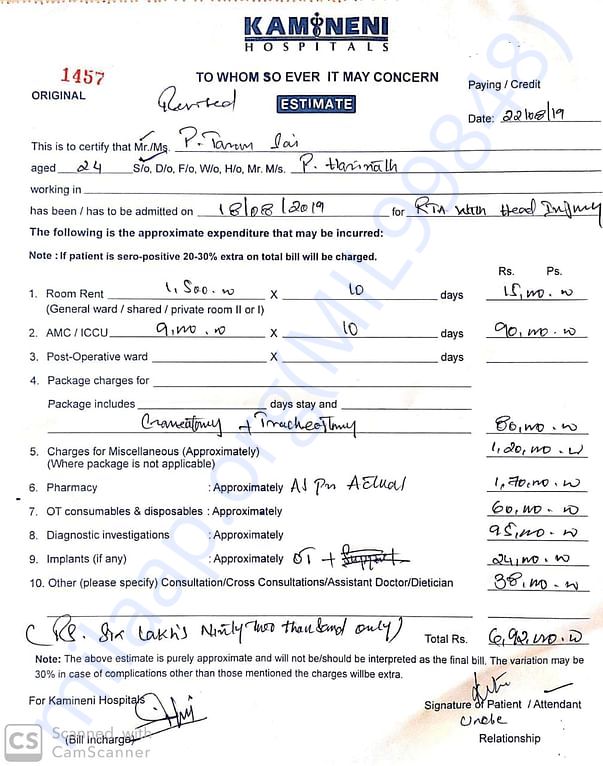 KAMINENI
HOSPITALS
1457
ORIGINAL
TO WHOM SO EVER IT MAY CONCERN
Paying / Credit
Revised
ESTIMATE
Date: 22/08/19
This is to certify that Mr./Ms. P. Tarun Sai
aged 24 S/o, D/o, F/o, W/o, H/o, Mr. M/s. P. Harinath
working in
has been / has to be admitted on 18/08/2019 for RTA with Head Injury
The following is the approximate expenditure that may be incurred:
Note : If patient is sero-positive 20-30% extra on total bill will be charged.
Rs. Ps.
1. Room Rent 1,500.00 X 10 days 15,000.00
(General ward / shared / private room II or I)
2. AMC / ICCU 9,000.00 X 10 days 90,000.00
3. Post-Operative ward X days
4. Package charges for
Package includes days stay and
Craneotomy + Tracheotomy 80,000.00
5. Charges for Miscellaneous (Approximately) 1,20,000.00
(Where package is not applicable)
6. Pharmacy : Approximately As Per Actual 1,70,000.00
7. OT consumables & disposables : Approximately 60,000.00
8. Diagnostic investigations : Approximately 95,000.00
9. Implants (if any) : Approximately OT + 24,000.00
10. Other (please specify) Consultation/Cross Consultations/Assistant Doctor/Dietician 38,000.00
(Rs. Six Lakhs Ninty two thousand only) Total Rs. 6,92,000.00
Note: The above estimate is purely approximate and will not be/should be interpreted as the final bill. The variation may be
30% in case of complications other than those mentioned the charges willbe extra.
For Kamineni Hospitals
Signature of Patient / Attendant
(Bill incharge)
Relationship
CS Scanned with
CamScanner
milaap.org(MIL99848)